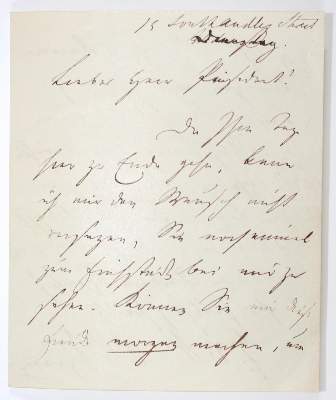 15 South Audley Street
Lieber Herr Präsident!
Da Ihre Tage
hier zu Ende gehn, kann
ich mir den Wunsch nicht
versagen, Sie noch einmal
zum Frühstück bei mir zu
sehen. Können Sie mir diese
Freude morgen machen, um